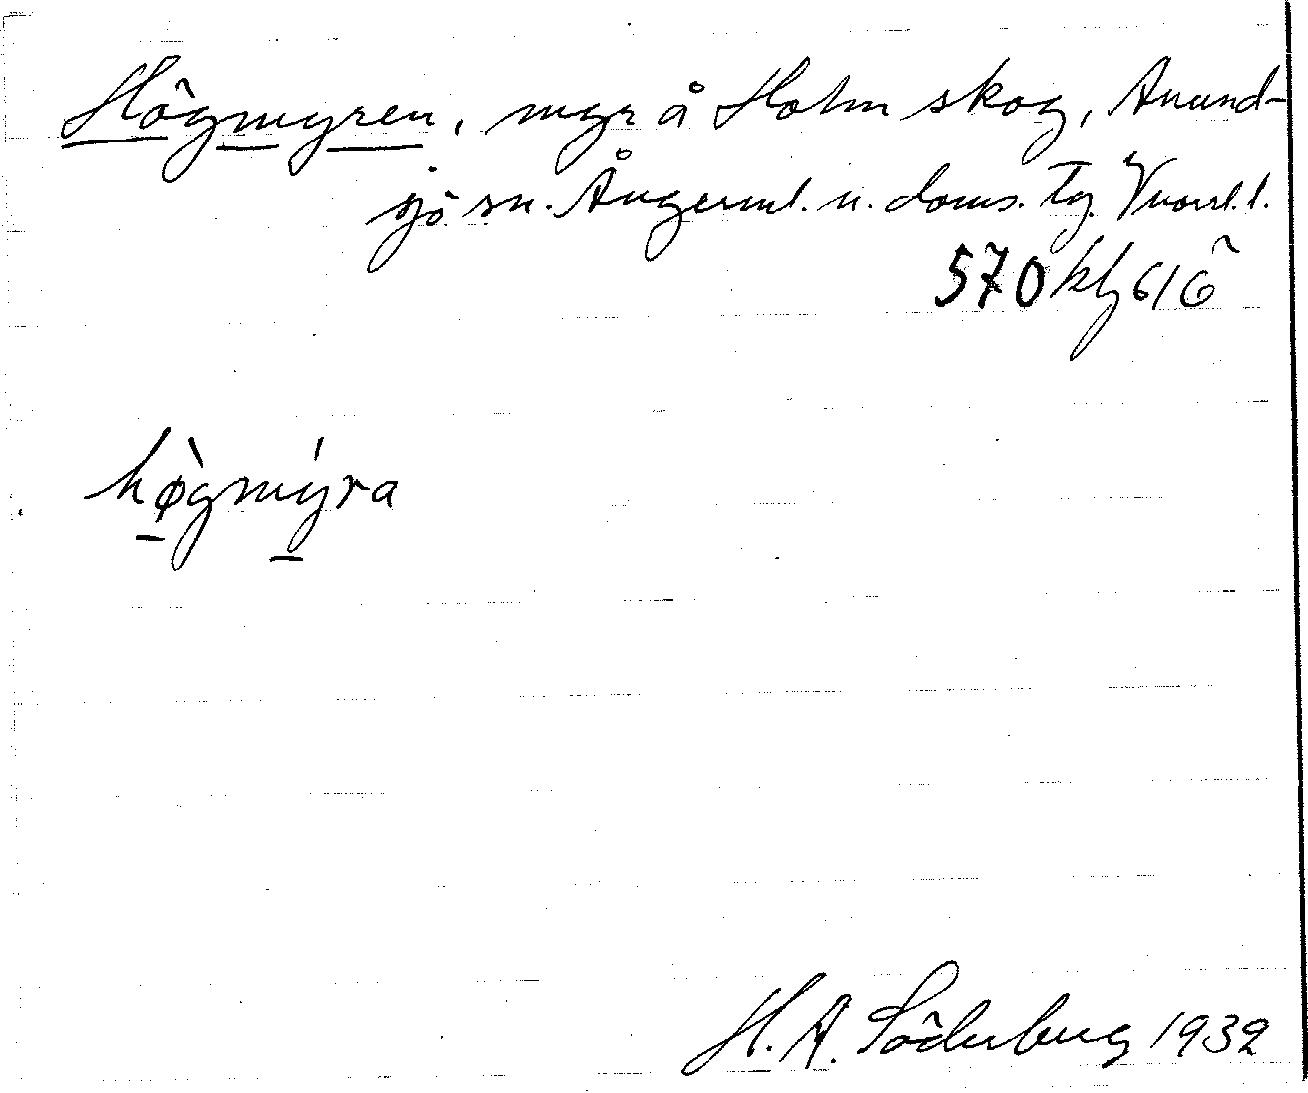 Högmyren, myr å Holm skog, Anund-
sjö sn. Ångerml. n. doms. tg. Vnorrl. l.
570 kbg 616
hø̀gmýra
H. A. Söderberg 1932